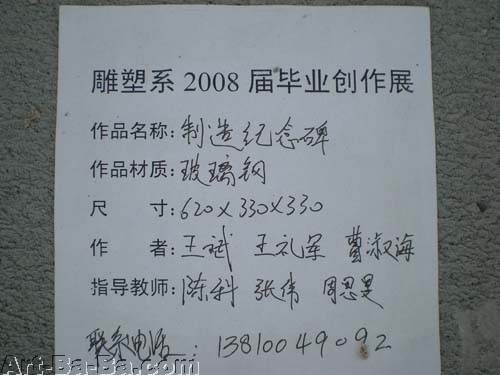 雕塑系 2008 届毕业创作展
作品名称：制造纪念碑
作品材质：玻璃钢
尺 寸：620X330X330
作 者：王斌 王礼军 曹淑海
指导教师：陈科 张伟 周思旻
联系电话： 13810049092
Art-Ba-Ba.com